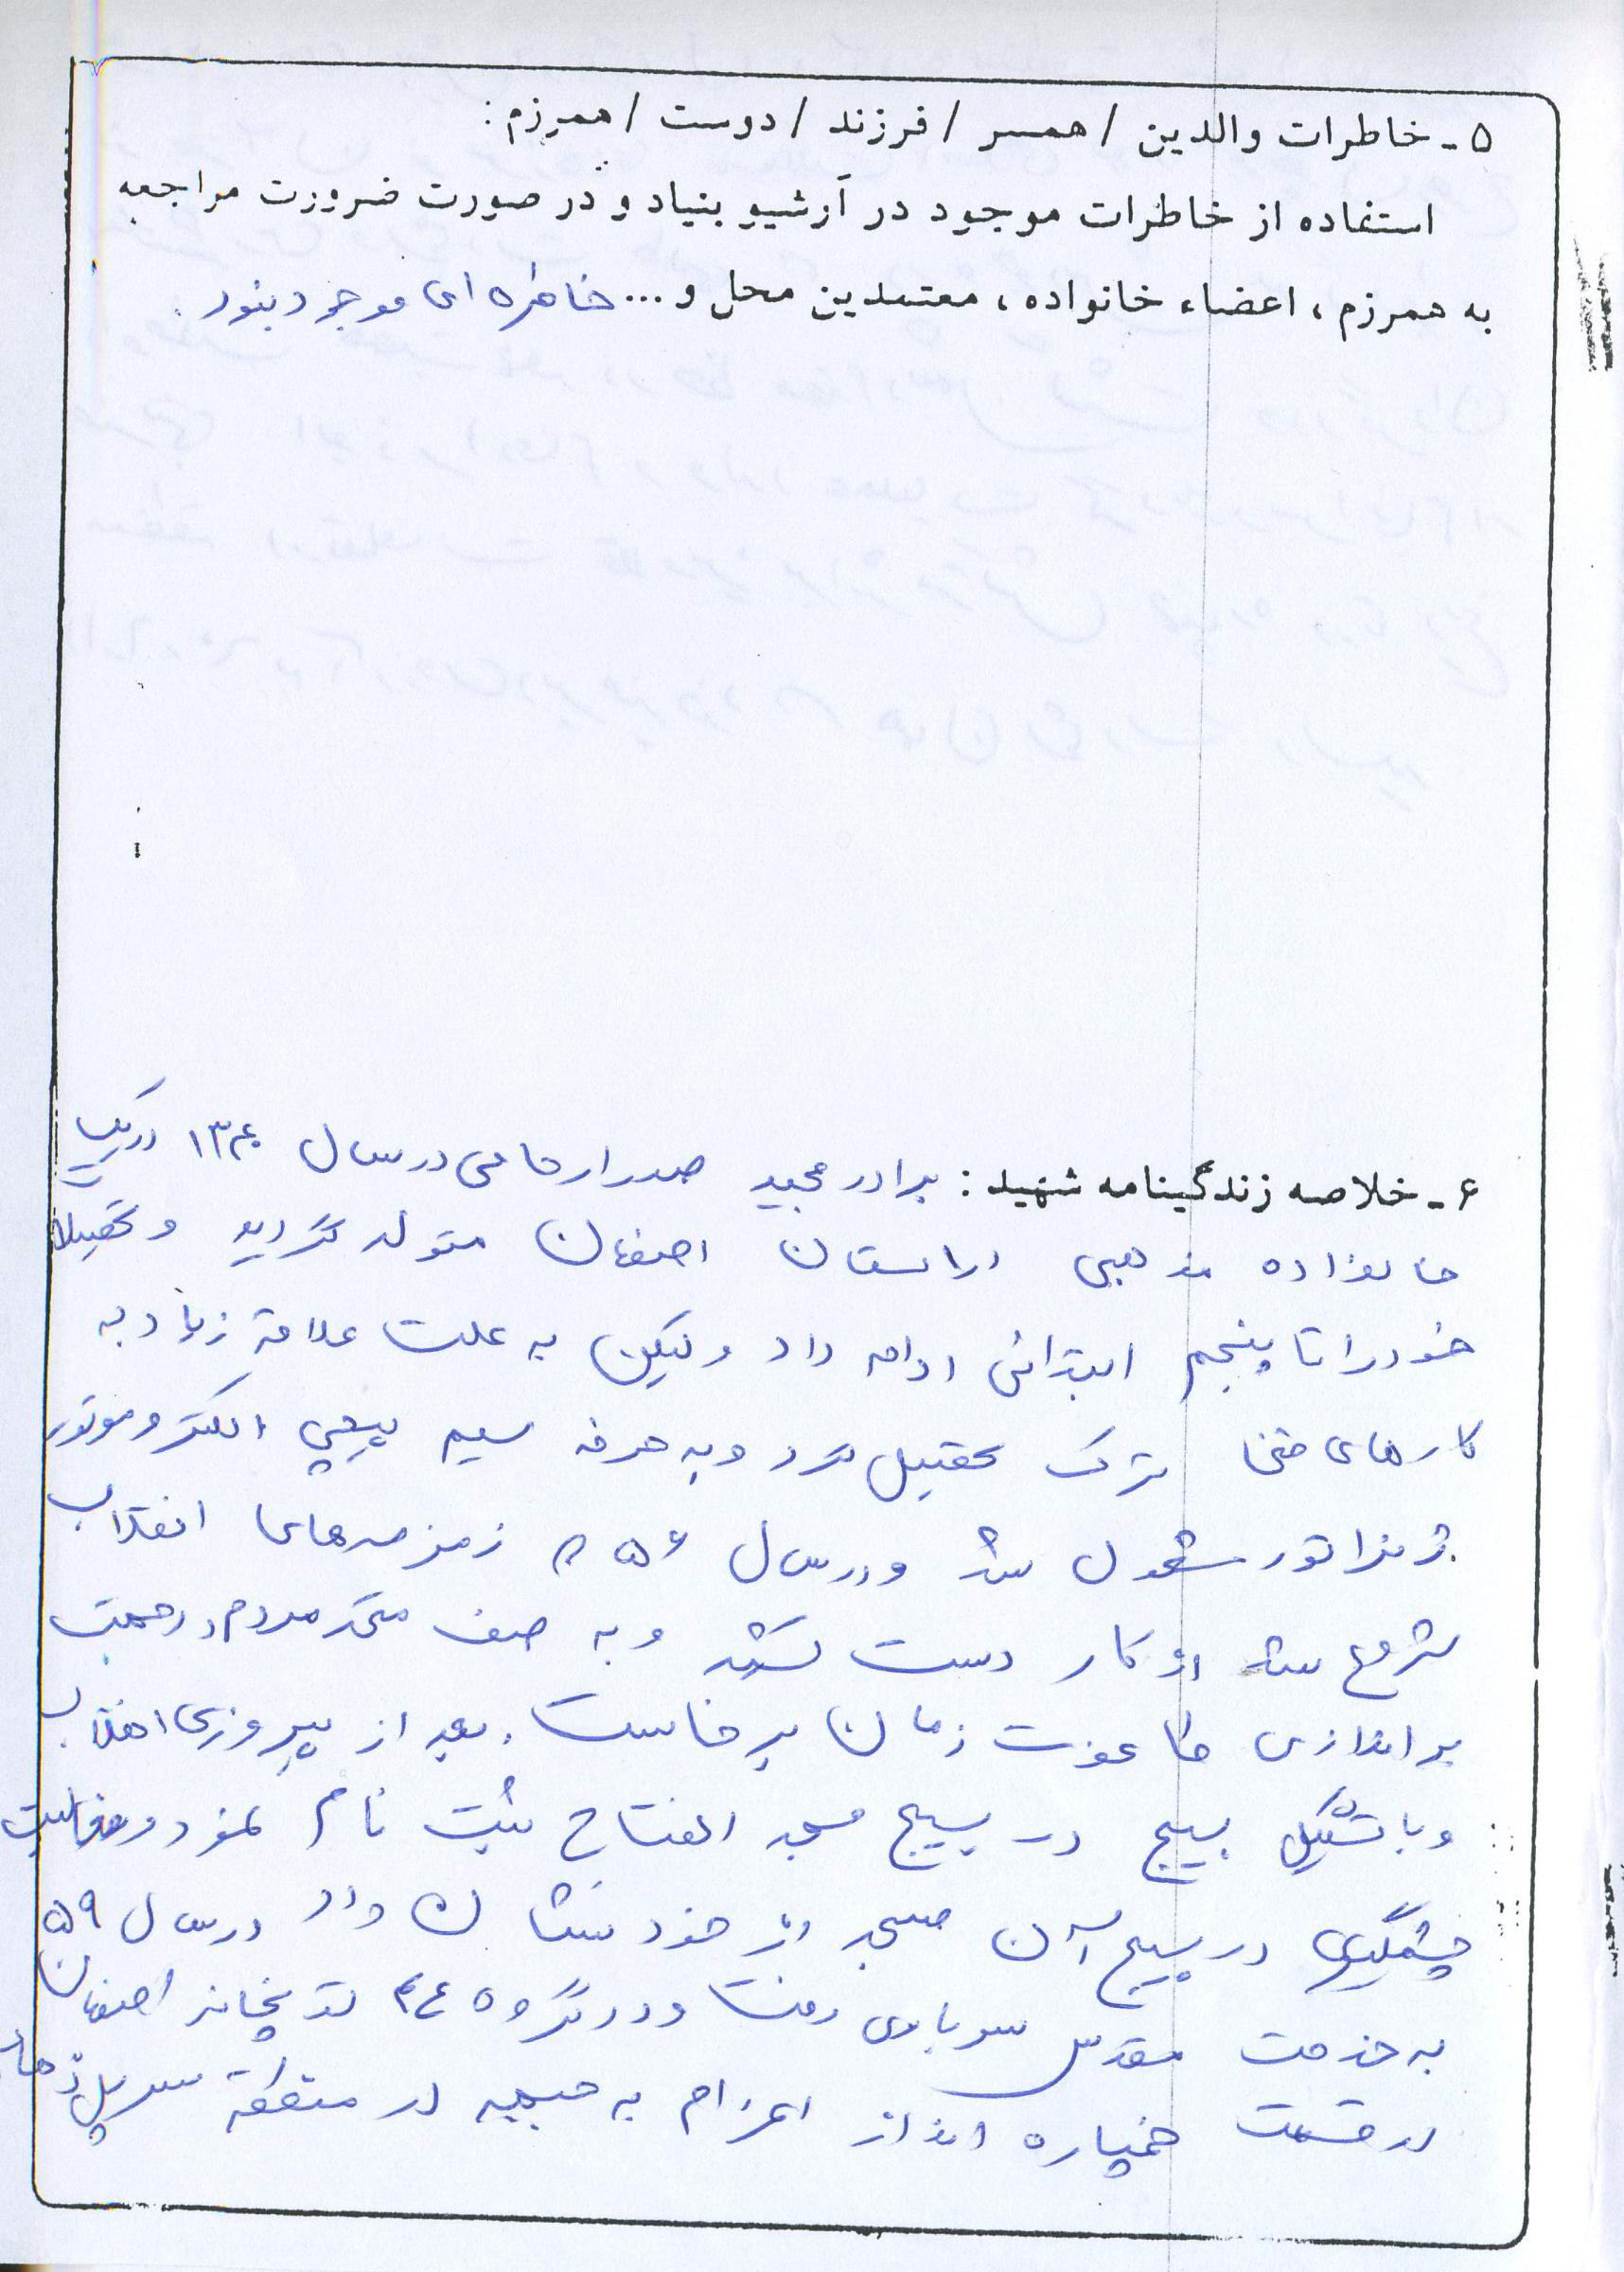 ۵ - خاطرات والدین / همسر / فرزند / دوست / همرزم :
استفاده از خاطرات موجود در آرشیو بنیاد و در صورت ضرورت مراجعه
به همرزم ، اعضاء خانواده ، معتمدین محل و ... خاطره ای موجود بنود .
۶ - خلاصه زندگینامه شهید : برادر مجید صدر ارحامی در سال ۱۳۴۰ در یک
خانواده مذهبی در استان اصفهان متولد گردید و تحصیلا
خود را تا پنجم ابتدائی ادامه داد ولیکن به علت علاقه زیاد به
کارهای فنی ترک تحصیل کرد و به حرفه سیم پیچی الکتروموتور
ژنراتور مشغول شد و در سال ۵۶ زمزمه های انقلاب
شروع شد از کار دست کشید و به صف متحد مردم در جهت
براندازی طاغوت زمان برخاست . بعد از پیروزی انقلاب
و با تشکیل بسیج در بسیج مسجد الفتاح ثبت نام نمود و فعالیت
چشمگیری در بسیج آن مسجد از خود نشان داد در سال ۵۹
به خدمت مقدس سربازی رفت و در گروه ۴۴ توپخانه اصفهان
در قسمت خمپاره انداز اعزام به جبهه در منطقه سرپل ذهاب